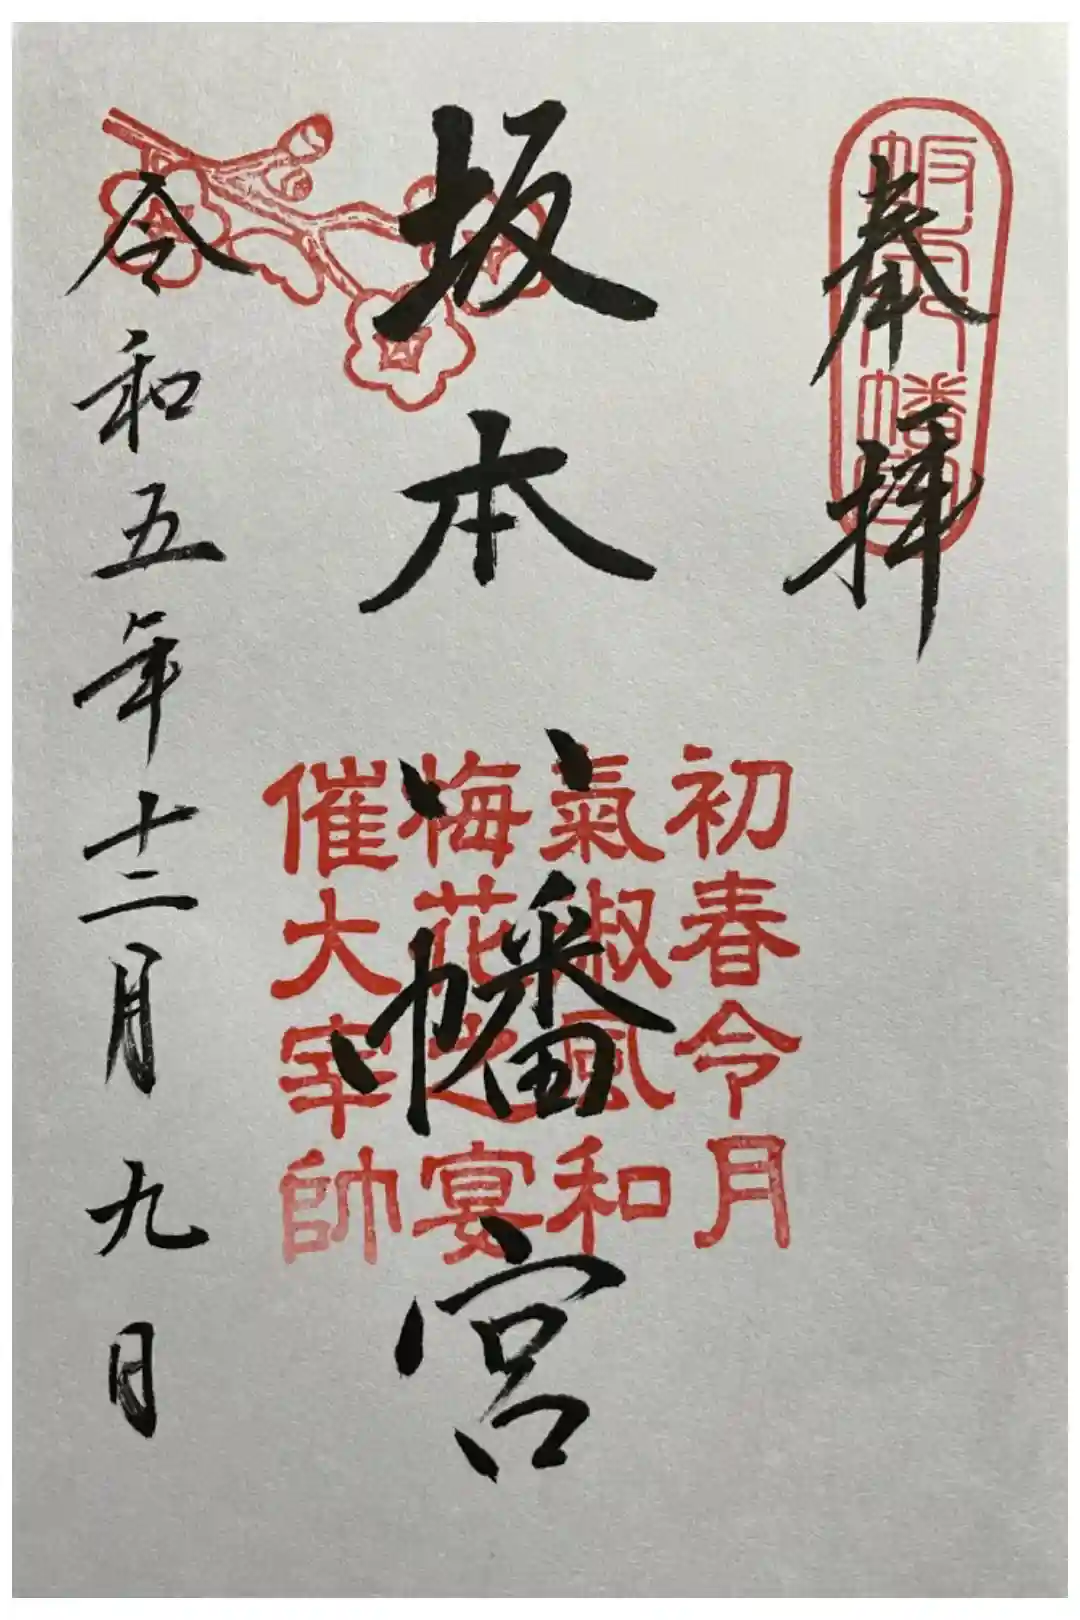 奉拝
坂本八幡宮
坂本八幡宮
初春令月
氣淑風和
梅花之宴
催大宰帥
令和五年十二月九日